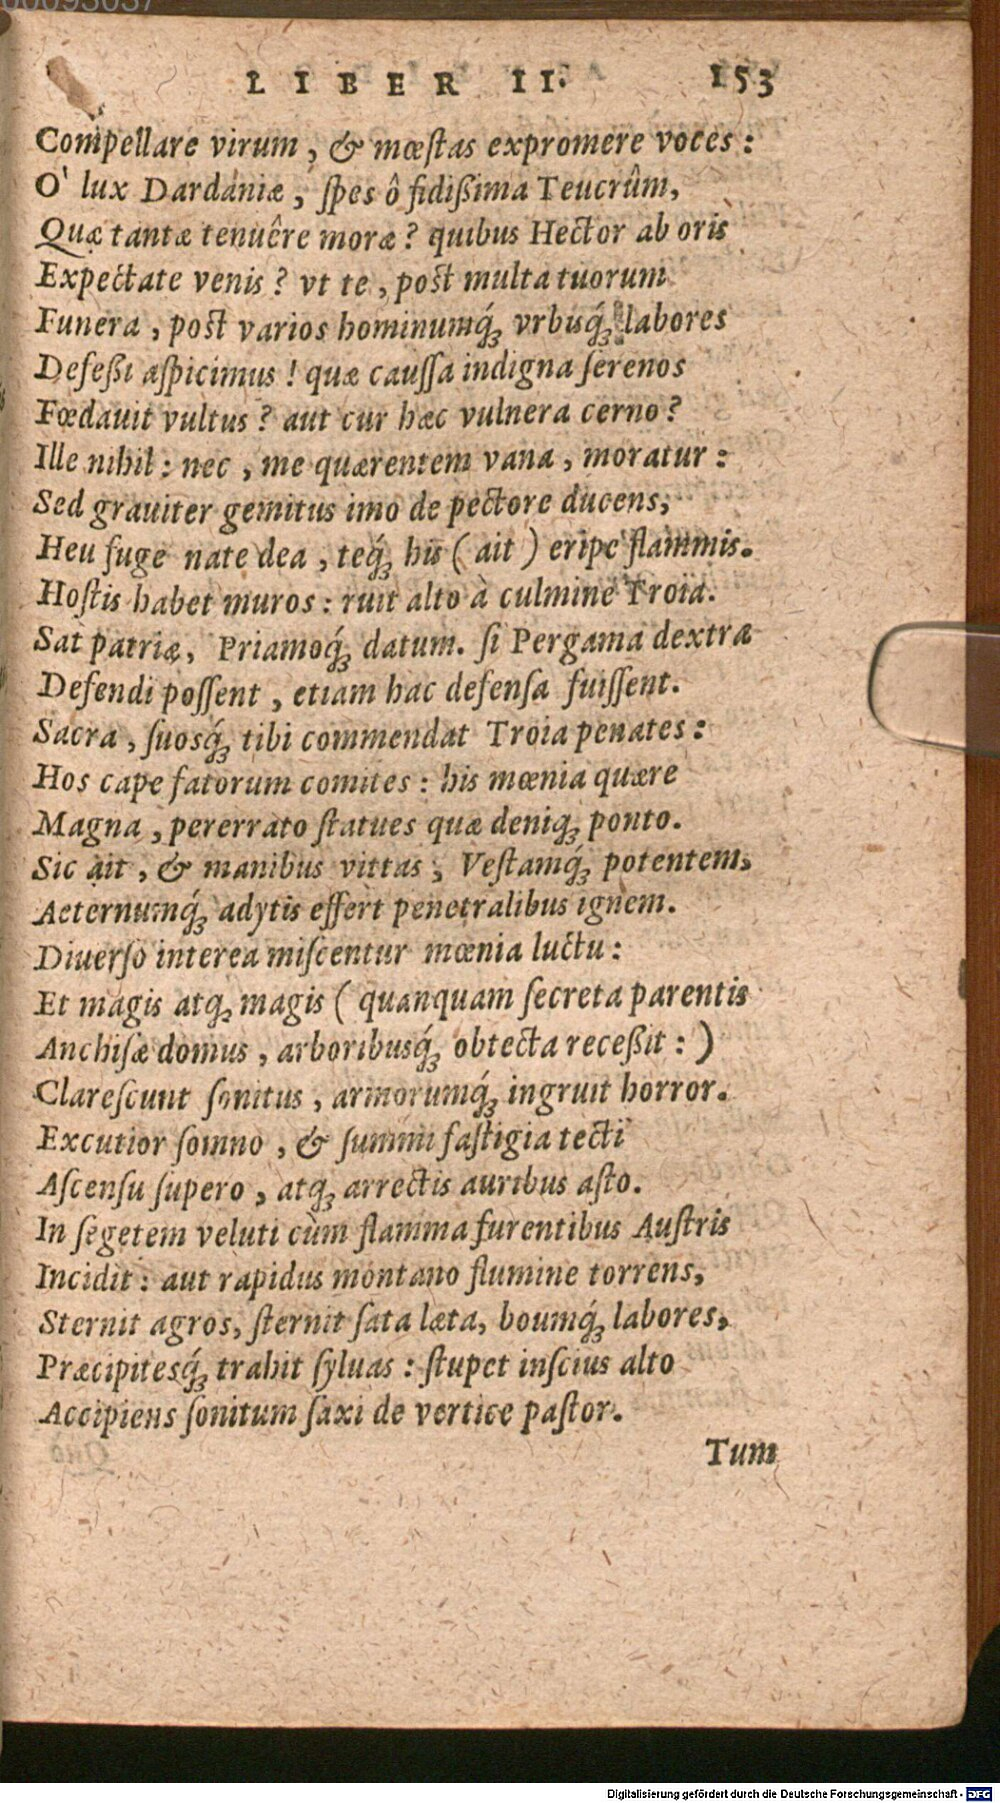 LIBER II. 153
Compellare virum, & mœſtas expromere voces:
O' lux Dardaniæ, ſpes ô fidißima Teucrûm,
Quæ tantæ tenuêre moræ? quibus Hector ab oris
Expectate venis? vt te, post multa tuorum
Funera, post varios hominumq́; vrbisq́; labores
Defeßi aſpicimus! quæ cauſſa indigna ſerenos
Fœdauit vultus? aut cur hæc vulnera cerno?
Ille nihil: nec, me quærentem vana, moratur:
Sed grauiter gemitus imo de pectore ducens,
Heu fuge nate dea, teq́; his (ait) eripe flammis.
Hoſtis habet muros: ruit alto à culmine Troia.
Sat patriæ, Priamoq́; datum. ſi Pergama dextra
Defendi poſſent, etiam hac defenſa fuiſſent.
Sacra, ſuosq́; tibi commendat Troia penates:
Hos cape fatorum comites: his mœnia quære
Magna, pererrato ſtatues quæ deniq; ponto.
Sic ait, & manibus vittas, Veſtamq́; potentem,
Aeternumq́; adytis effert penetralibus ignem.
Diuerſo interea miſcentur mœnia luctu:
Et magis atq; magis (quanquam ſecreta parentis
Anchiſæ domus, arboribusq́; obtecta receßit:)
Clareſcunt ſonitus, armorumq́; ingruit horror.
Excutior ſomno, & ſummi faſtigia tecti
Aſcenſu ſupero, atq; arrectis auribus aſto.
In ſegetem veluti cùm flamma furentibus Auſtris
Incidit: aut rapidus montano flumine torrens,
Sternit agros, ſternit ſata læta, boumq́; labores,
Præcipitesq́; trahit ſyluas: ſtupet inſcius alto
Accipiens ſonitum ſaxi de vertice paſtor.
Tum
Digitalisierung gefördert durch die Deutsche Forschungsgemeinschaft - DFG